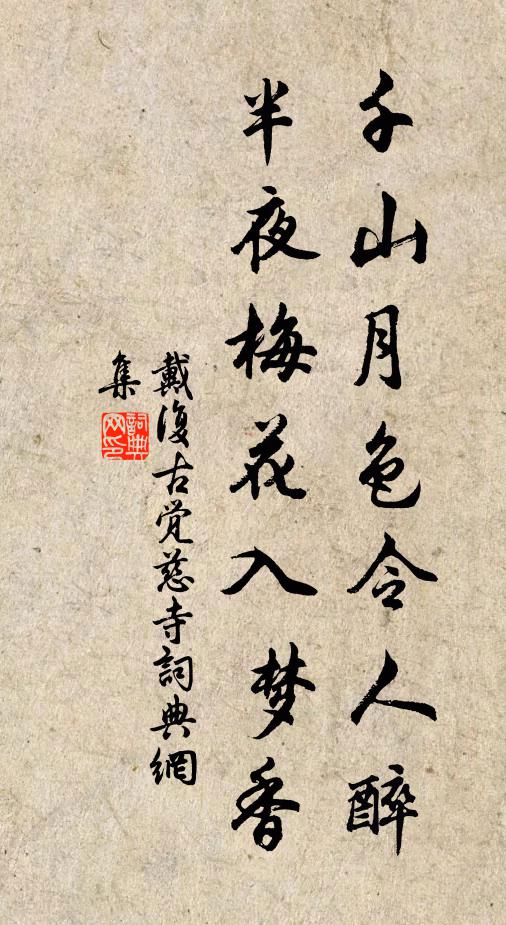 千山月色令人醉
半夜梅花入梦香
戴復古觉慈寺詞典網
集
詞典
网印